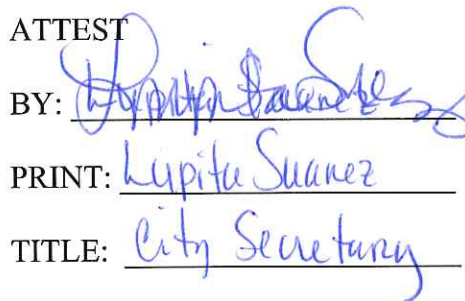 ATTEST
BY:
PRINT: Lupita Suarez
TITLE: City Secretary